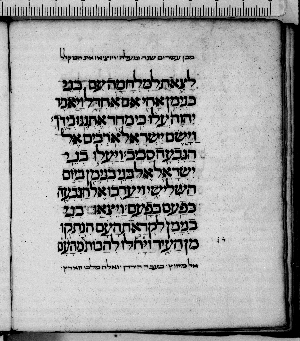 מבן עשרים שנה ומעלה ויוציאו את המקלל
לצאת למלחמה עם בני
בנימן אחי אם אחדל ויאמר
יהוה עלו כי מחר אתננו בידך
וישם ישראל ארבים אל
הגבעה סביב ויעלו בני
ישראל אל בני בנימן ביום
השלישי ויערכו אל הגבעה
כפעם בפעם ויצאו בני
בנימן לקראת העם הנתקו
מן העיר ויחלו להכות מהעם
ואלה מלכי הארץ